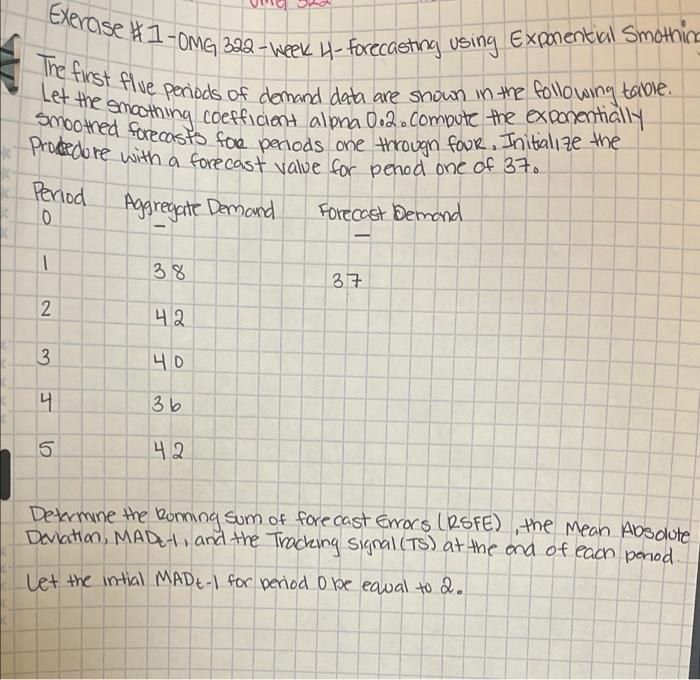 OMG 322
Exercise #1-OMG 322-Week 4-Forecasting using Exponential Smothing
The first five periods of demand data are shown in the following table.
Let the smoothing coefficient alpha 0.2. Compute the exponentially
smoothed forecasts foe periods one through four. Initialize the
procedure with a forecast value for period one of 37.
Period Aggregate Demand Forecast Demand
0 - -
1 38 37
2 42
3 40
4 36
5 42
Determine the Running sum of forecast Errors (RSFE), the Mean Absolute
Deviation, MADt-1, and the Tracking signal (TS) at the end of each period.
Let the intial MADt-1 for period 0 be equal to 2.